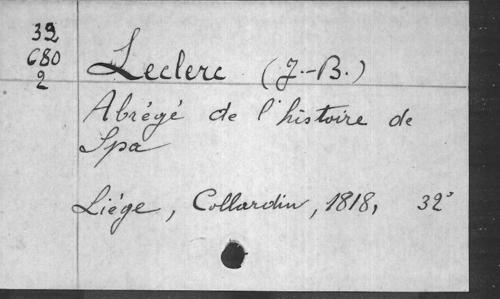 32
680
2
Leclerc (J.-B.)
Abrégé de l'histoire de
Spa
Liége, Collardin, 1818, 32°